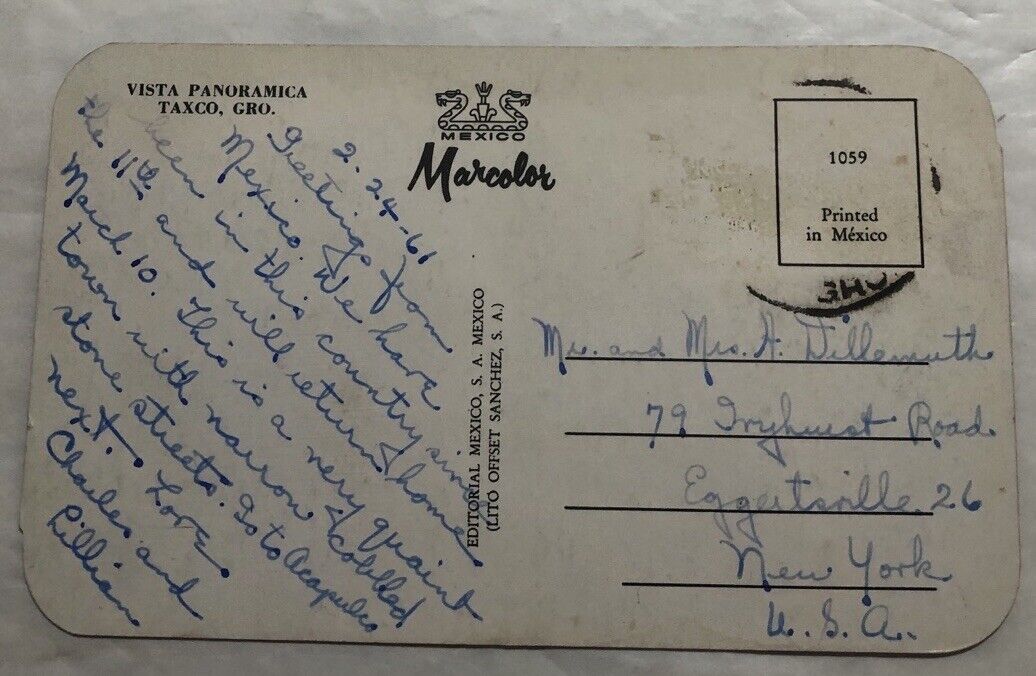 VISTA PANORAMICA
TAXCO, GRO.
MEXICO
Marcolor
1059
Printed
in México
EDITORIAL MEXICO, S. A. MEXICO
(LITO OFFSET SANCHEZ, S. A.)
2-24-61
Greetings from
Mexico. We have
been in this country since
the 11th and will return home
March 10. This is a very quaint
town with narrow cobbled
stone streets. Go to Acapulco
next. Love
Charles and
Lillian
Mr. and Mrs. A. Dillemuth
79 Ivyhurst Road
Eggertsville 26
New York
U.S.A.